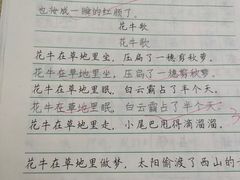 也将成一瞬的红颜了。
花牛歌
花牛歌
花牛在草地里坐，压扁了一穗剪秋萝。
花牛在草地里坐，压扁了一穗剪秋萝。
花牛在草地里眠，白云霸占了半个天。
花牛在草地里眠，白云霸占了半个天。
花牛在草地里走，小尾巴甩得滴溜溜。
花牛在草地里做梦，太阳偷渡了西山的